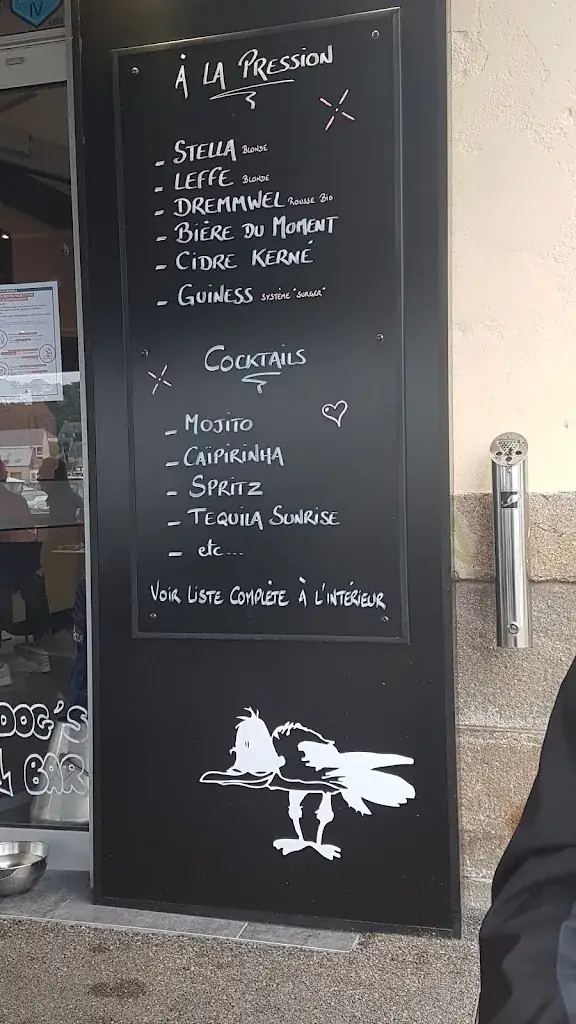 IV
À LA PRESSION
- STELLA BLONDE
- LEFFE BLONDE
- DREMMWEL ROUSSE BIO
- BIÈRE DU MOMENT
- CIDRE KERNÉ
- GUINESS SYSTÈME "SURGER"
COCKTAILS
- MOJITO
- CAÏPIRINHA
- SPRITZ
- TEQUILA SUNRISE
- etc...
VOIR LISTE COMPLÈTE À L'INTÉRIEUR
DOG'S
BAR